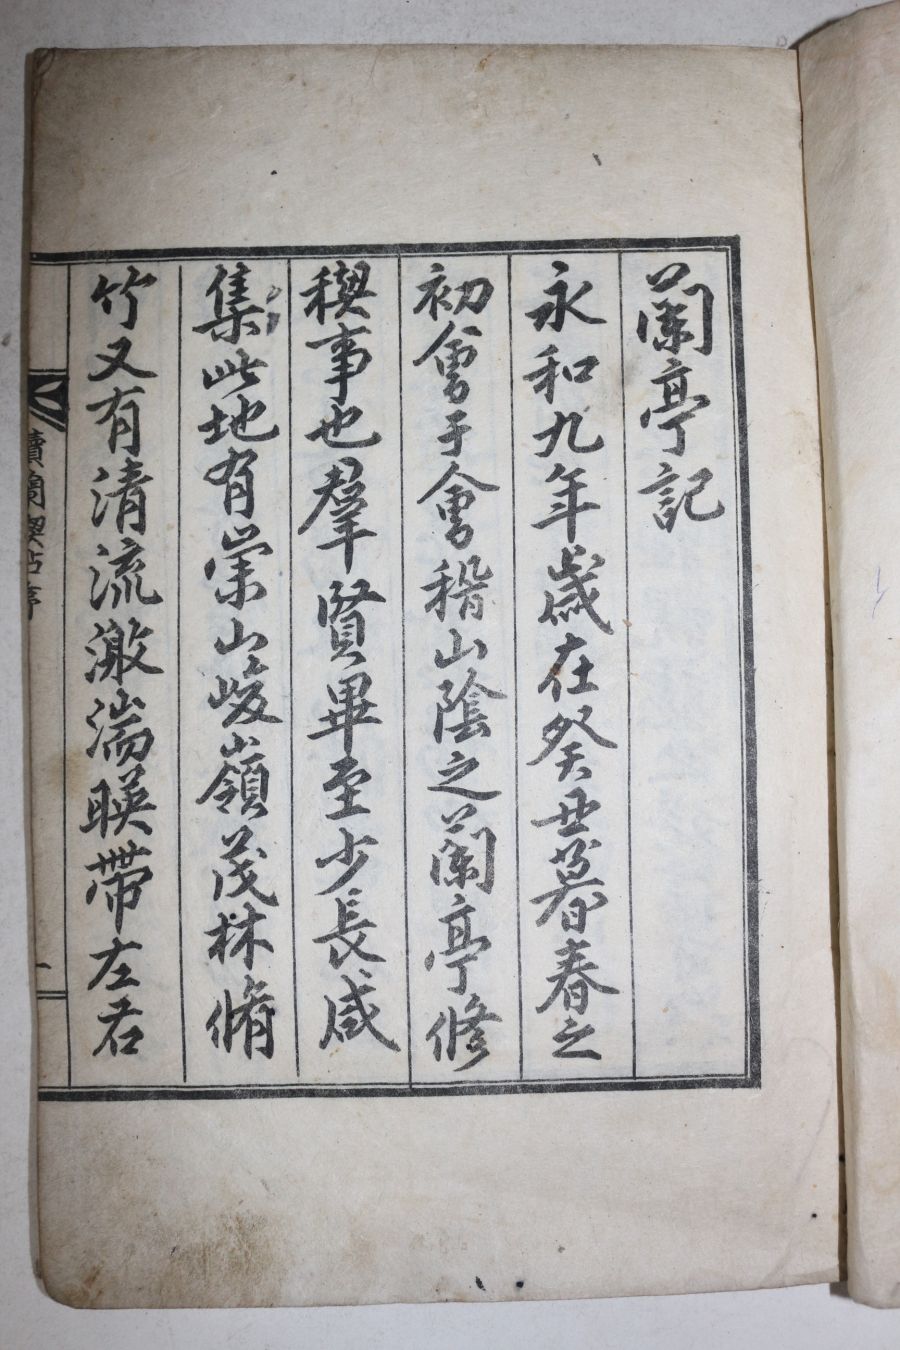 蘭亭記
永和九年歲在癸丑暮春之
初會于會稽山陰之蘭亭修
稧事也羣賢畢至少長咸
集此地有崇山峻嶺茂林脩
竹又有清流激湍暎帶左右
蘭稧帖序